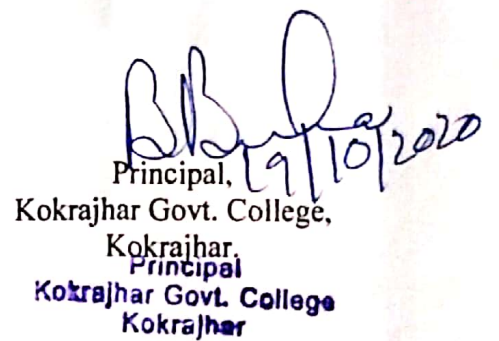 19/10/2020
Principal,
Kokrajhar Govt. College,
Kokrajhar.
Principal
Kokrajhar Govt. College
Kokrajhar